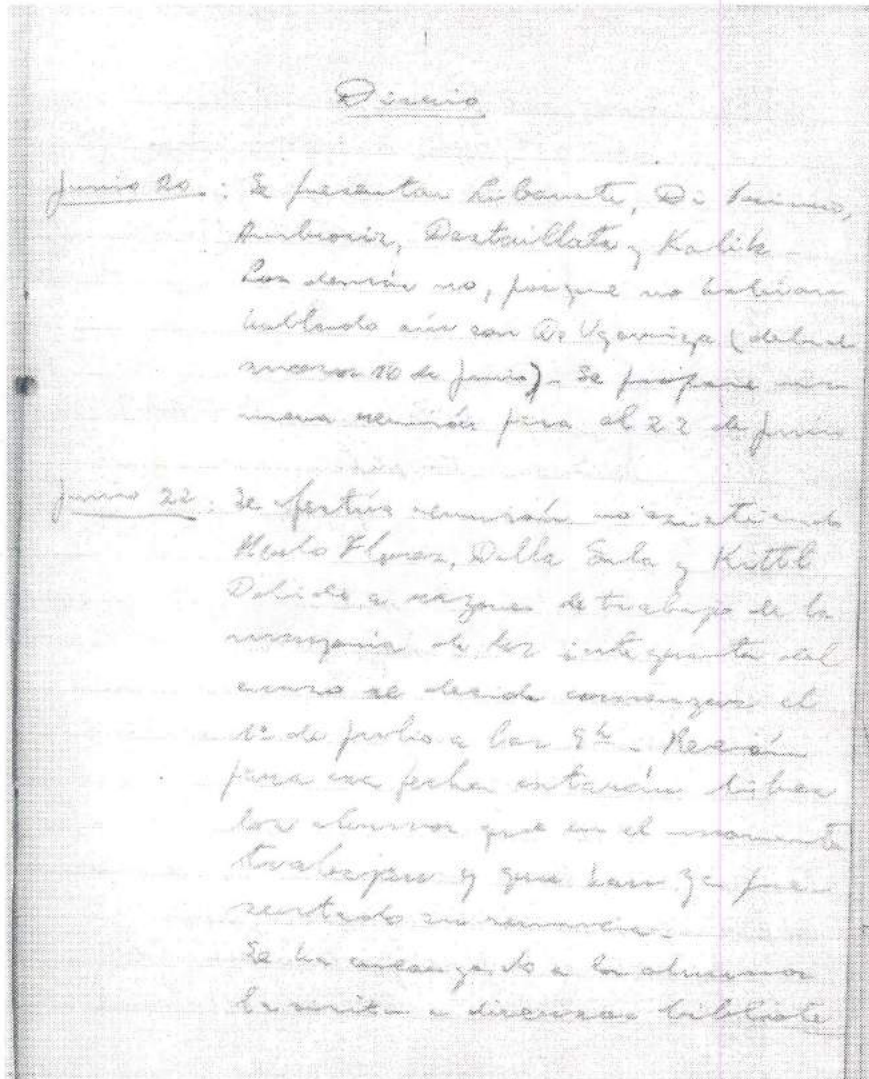 1
Diario
Junio 20 : Se presentan Libanate, Di
Destaillats y Kalik
Los demás no, porque no habían
hablado aún con
10 de Junio). Se propone una
nueva reunión para el 22 de Junio
Junio 22 : Se efectúa reunión no asistiendo
Flores, Della y Kittl
Debido a razones de trabajo de la
mayoría de los integrantes del
curso se decide comenzar el
1º de Julio a las 9h. Recién
para esa fecha estarían libres
los alumnos que en el momento
trabajan y que han ya pre-
sentado su renuncia.
Se ha encargado a los alumnos
la visita a diversas bibliote